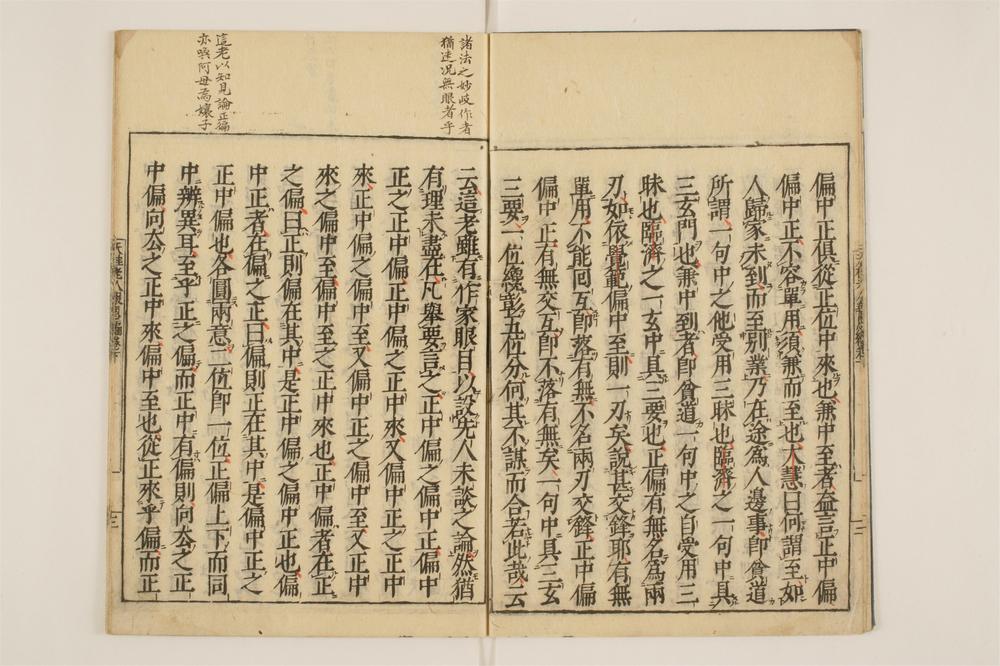 偏中正俱從正位中來也兼中至者益言正中偏
偏中正不容單用須兼而至也大慧曰何謂至如
人歸家未到而至別業乃在途爲人邊事卽曾道
所謂一句中之他受用三昧也臨濟之一句中具
三玄門也兼中到者卽曾道一句中之自受用三
昧也臨濟之一玄中具三要也正偏有無名爲兩
刃如依覺範偏中至則一刃矣說甚交鋒耶有無
單用不能囘互卽落有無不名兩刃交鋒正中偏
偏中正有無交互卽不落有無矣一句中具三玄
三要一位纔彰五位分何其不謀而合若此哉云
諸法之妙岐作者
猶迷况無眼者乎
云這老雖有作家眼目以設先人未談之論然猶
有理未盡在凡舉要言之正中偏之偏中正偏中
正之正中偏正中偏之正中來又偏中正之正中
來正中偏之偏中至又偏中正之偏中至又正中
來之偏中至偏中至之正中來也正中偏者在正
之偏曰正則偏在其中是正中偏之偏中正也偏
中正者在偏之正曰偏則正在其中是偏中正之
正中偏也各圓兩意二位卽一位正偏上下而同
中辨異耳至乎正之偏而正中有偏則向去之正
中偏向去之正中來偏中至也從正來乎偏而正
這老以知見論正偏
亦喚阿母爲孃子